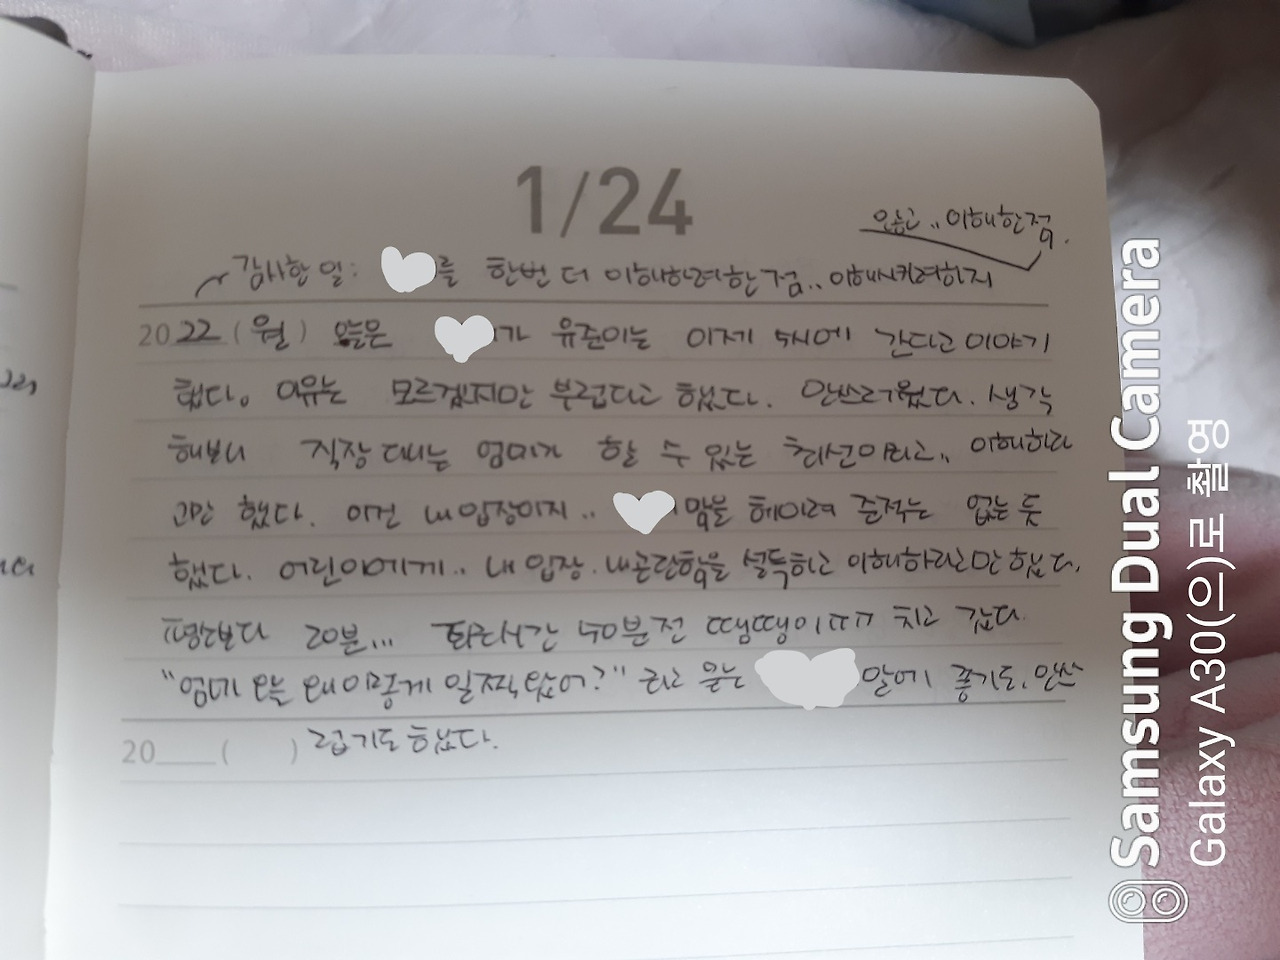 1/24
않고.. 이해한점.
감사한 일: 를 한번 더 이해하려한 점.. 이해시키려하지
2022 (월) 오늘은 가 유준이는 이제 5시에 간다고 이야기
했다. 이유는 모르겠지만 부럽다고 했다. 안쓰러웠다. 생각
해보니 직장 대니는 엄마가 할 수 있는 최선이라고.. 이해하라
고만 했다. 이건 내 입장이지.. 맘을 헤아려 준적는 없는 듯
했다. 어린이에게.. 내 입장. 내곤란함을 설득하고 이해하라고만 했다.
평소보다 20분... 퇴근시간 40분전 땡땡이 치고 갔다.
"엄마 오늘 왜이렇게 일찍왔어?" 라고 묻는 말에 좋기도, 안쓰
20 ( ) 럽기도 했다.
Samsung Dual Camera
Galaxy A30(으)로 촬영